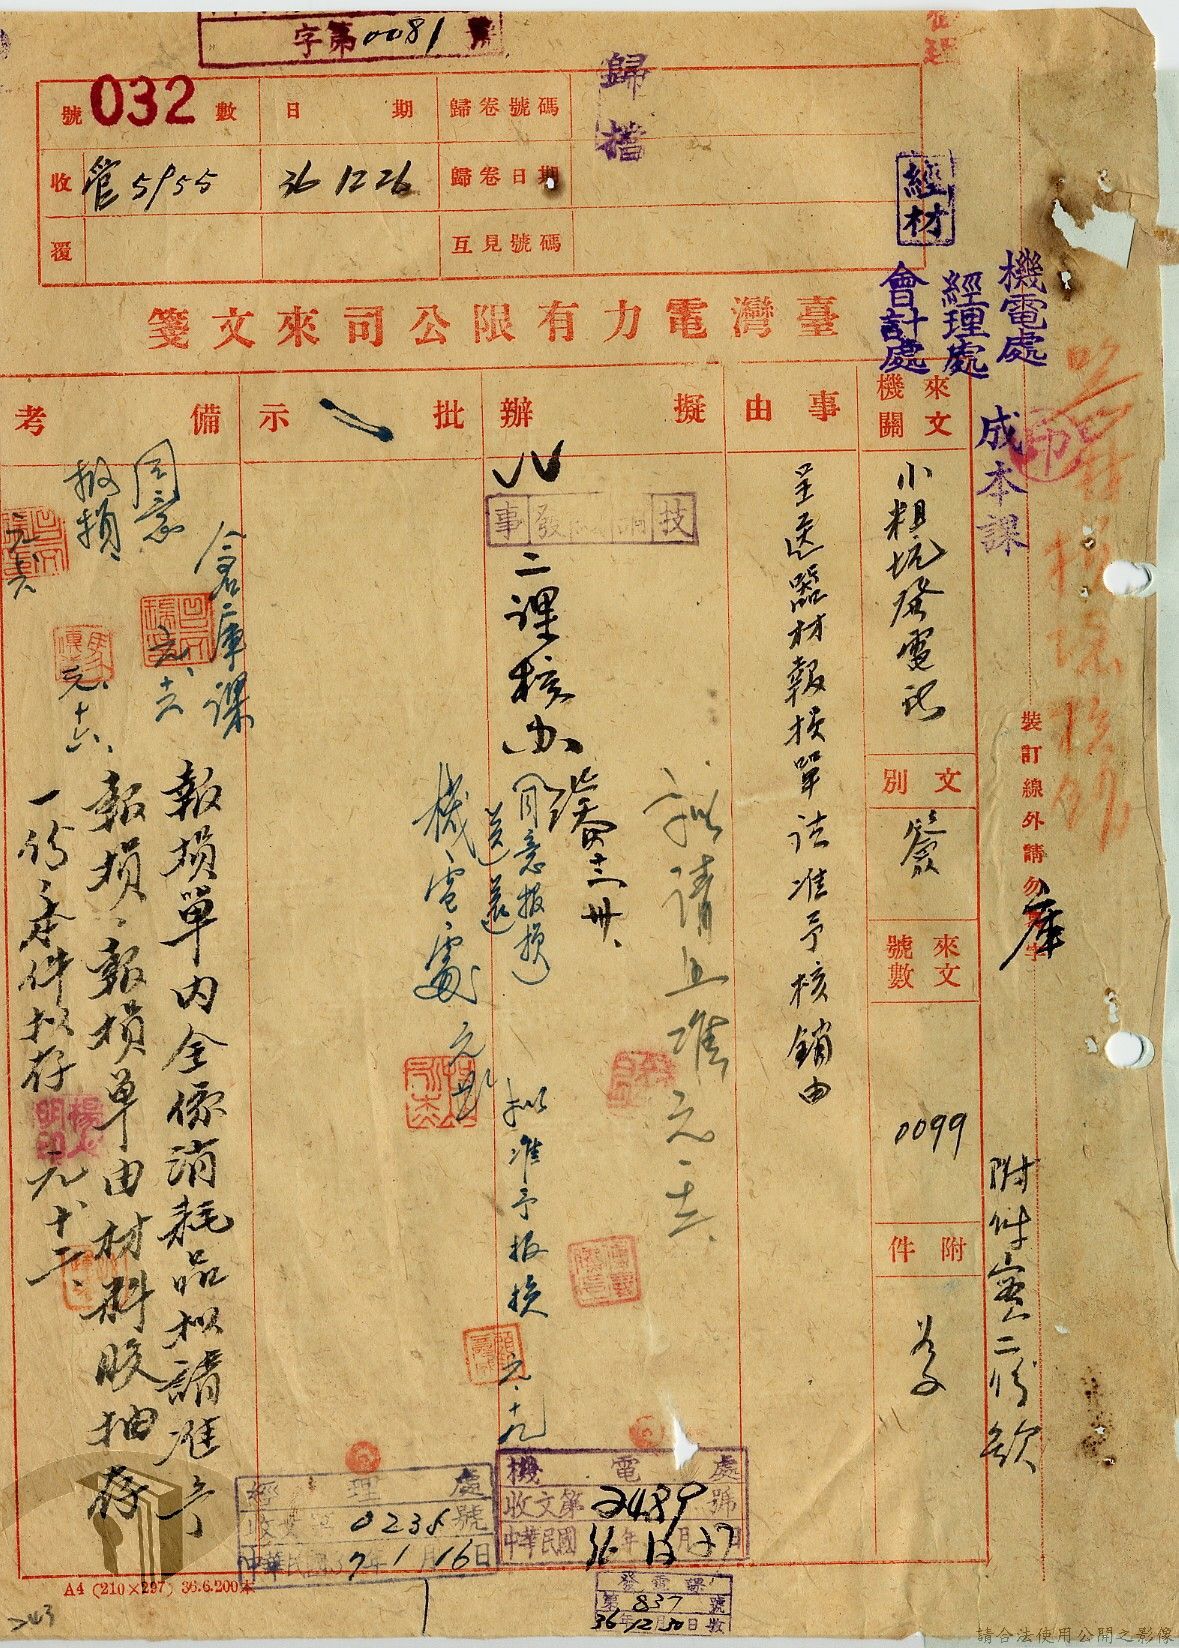 字第0081號
歸檔
號032數
日期
歸卷號碼
收
管5955
36 12 26
歸卷日期
覆
互見號碼
經材
機電處
經理處
會計處
成本課
臺灣電力有限公司來文箋
來文機關
事由
擬辦
批示
備考
小粗坑發電所
文別
簽
來文號數
0099
附件
呈送器材報損單請准予核銷由
二課核办
擬請照准
同意報損
送還
機電處
擬准予報損
倉庫課
同意
報損
報損單內全係消耗品擬請准予
報損、報損單由材料股抽存
一份、本件擬存
裝訂線外請勿寫字
庫
附件實二份欽
機電處
收文第2489號
中華民國36年12月27日
經理處
收文第0238號
中華民國37年1月16日
發電課
第837號
36年12月30日收
A4 (210×297) 36.6.200本
243
請合法使用公開之影像